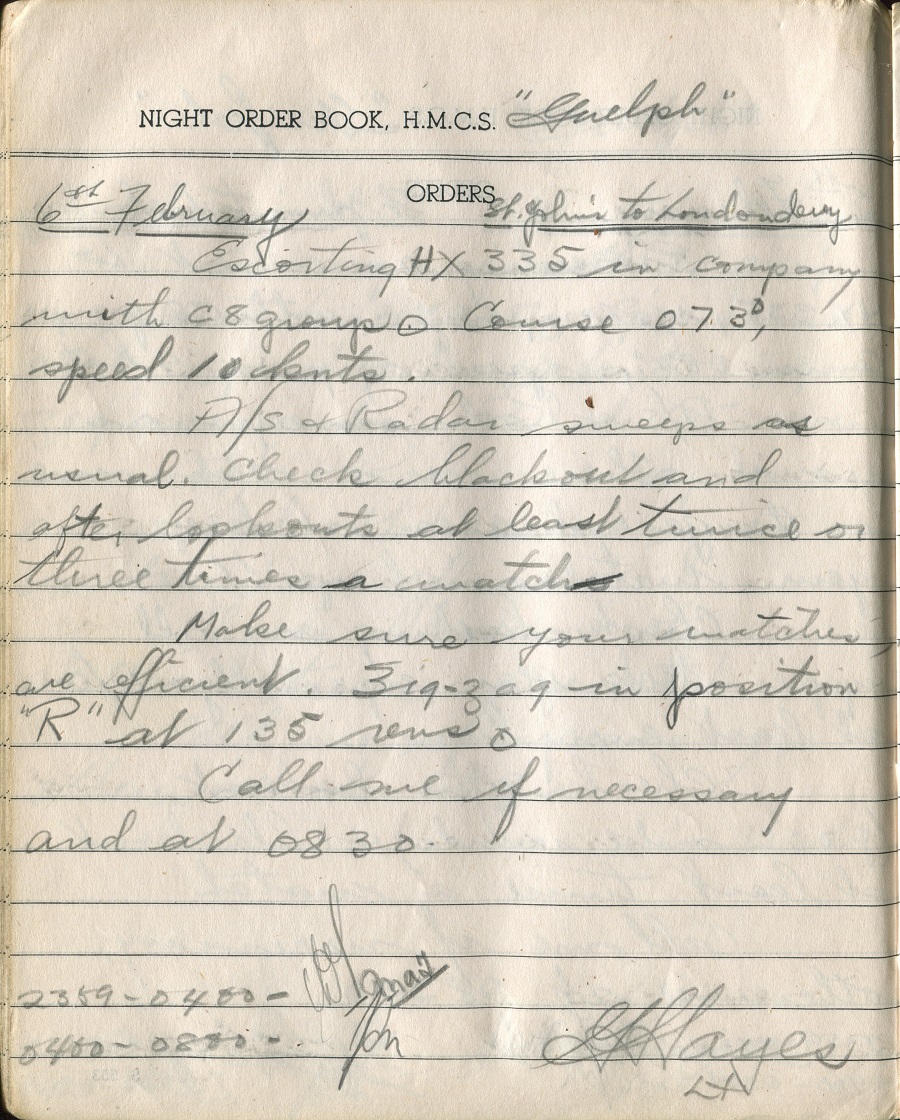 NIGHT ORDER BOOK, H.M.C.S. "Guelph"
ORDERS
6th February St. John's to Londonderry
Escorting HX 335 in company
with C8 group. Course 073°,
speed 10 knts.
A/S & Radar sweeps as
usual. Check blackout and
after lookouts at least twice or
three times a watch
Make sure your watches
are efficient. Zig-zag in position
"R" at 135 revs.
Call me if necessary
and at 0830.
2359-0400-
0400-0800-
Hayes
Lt